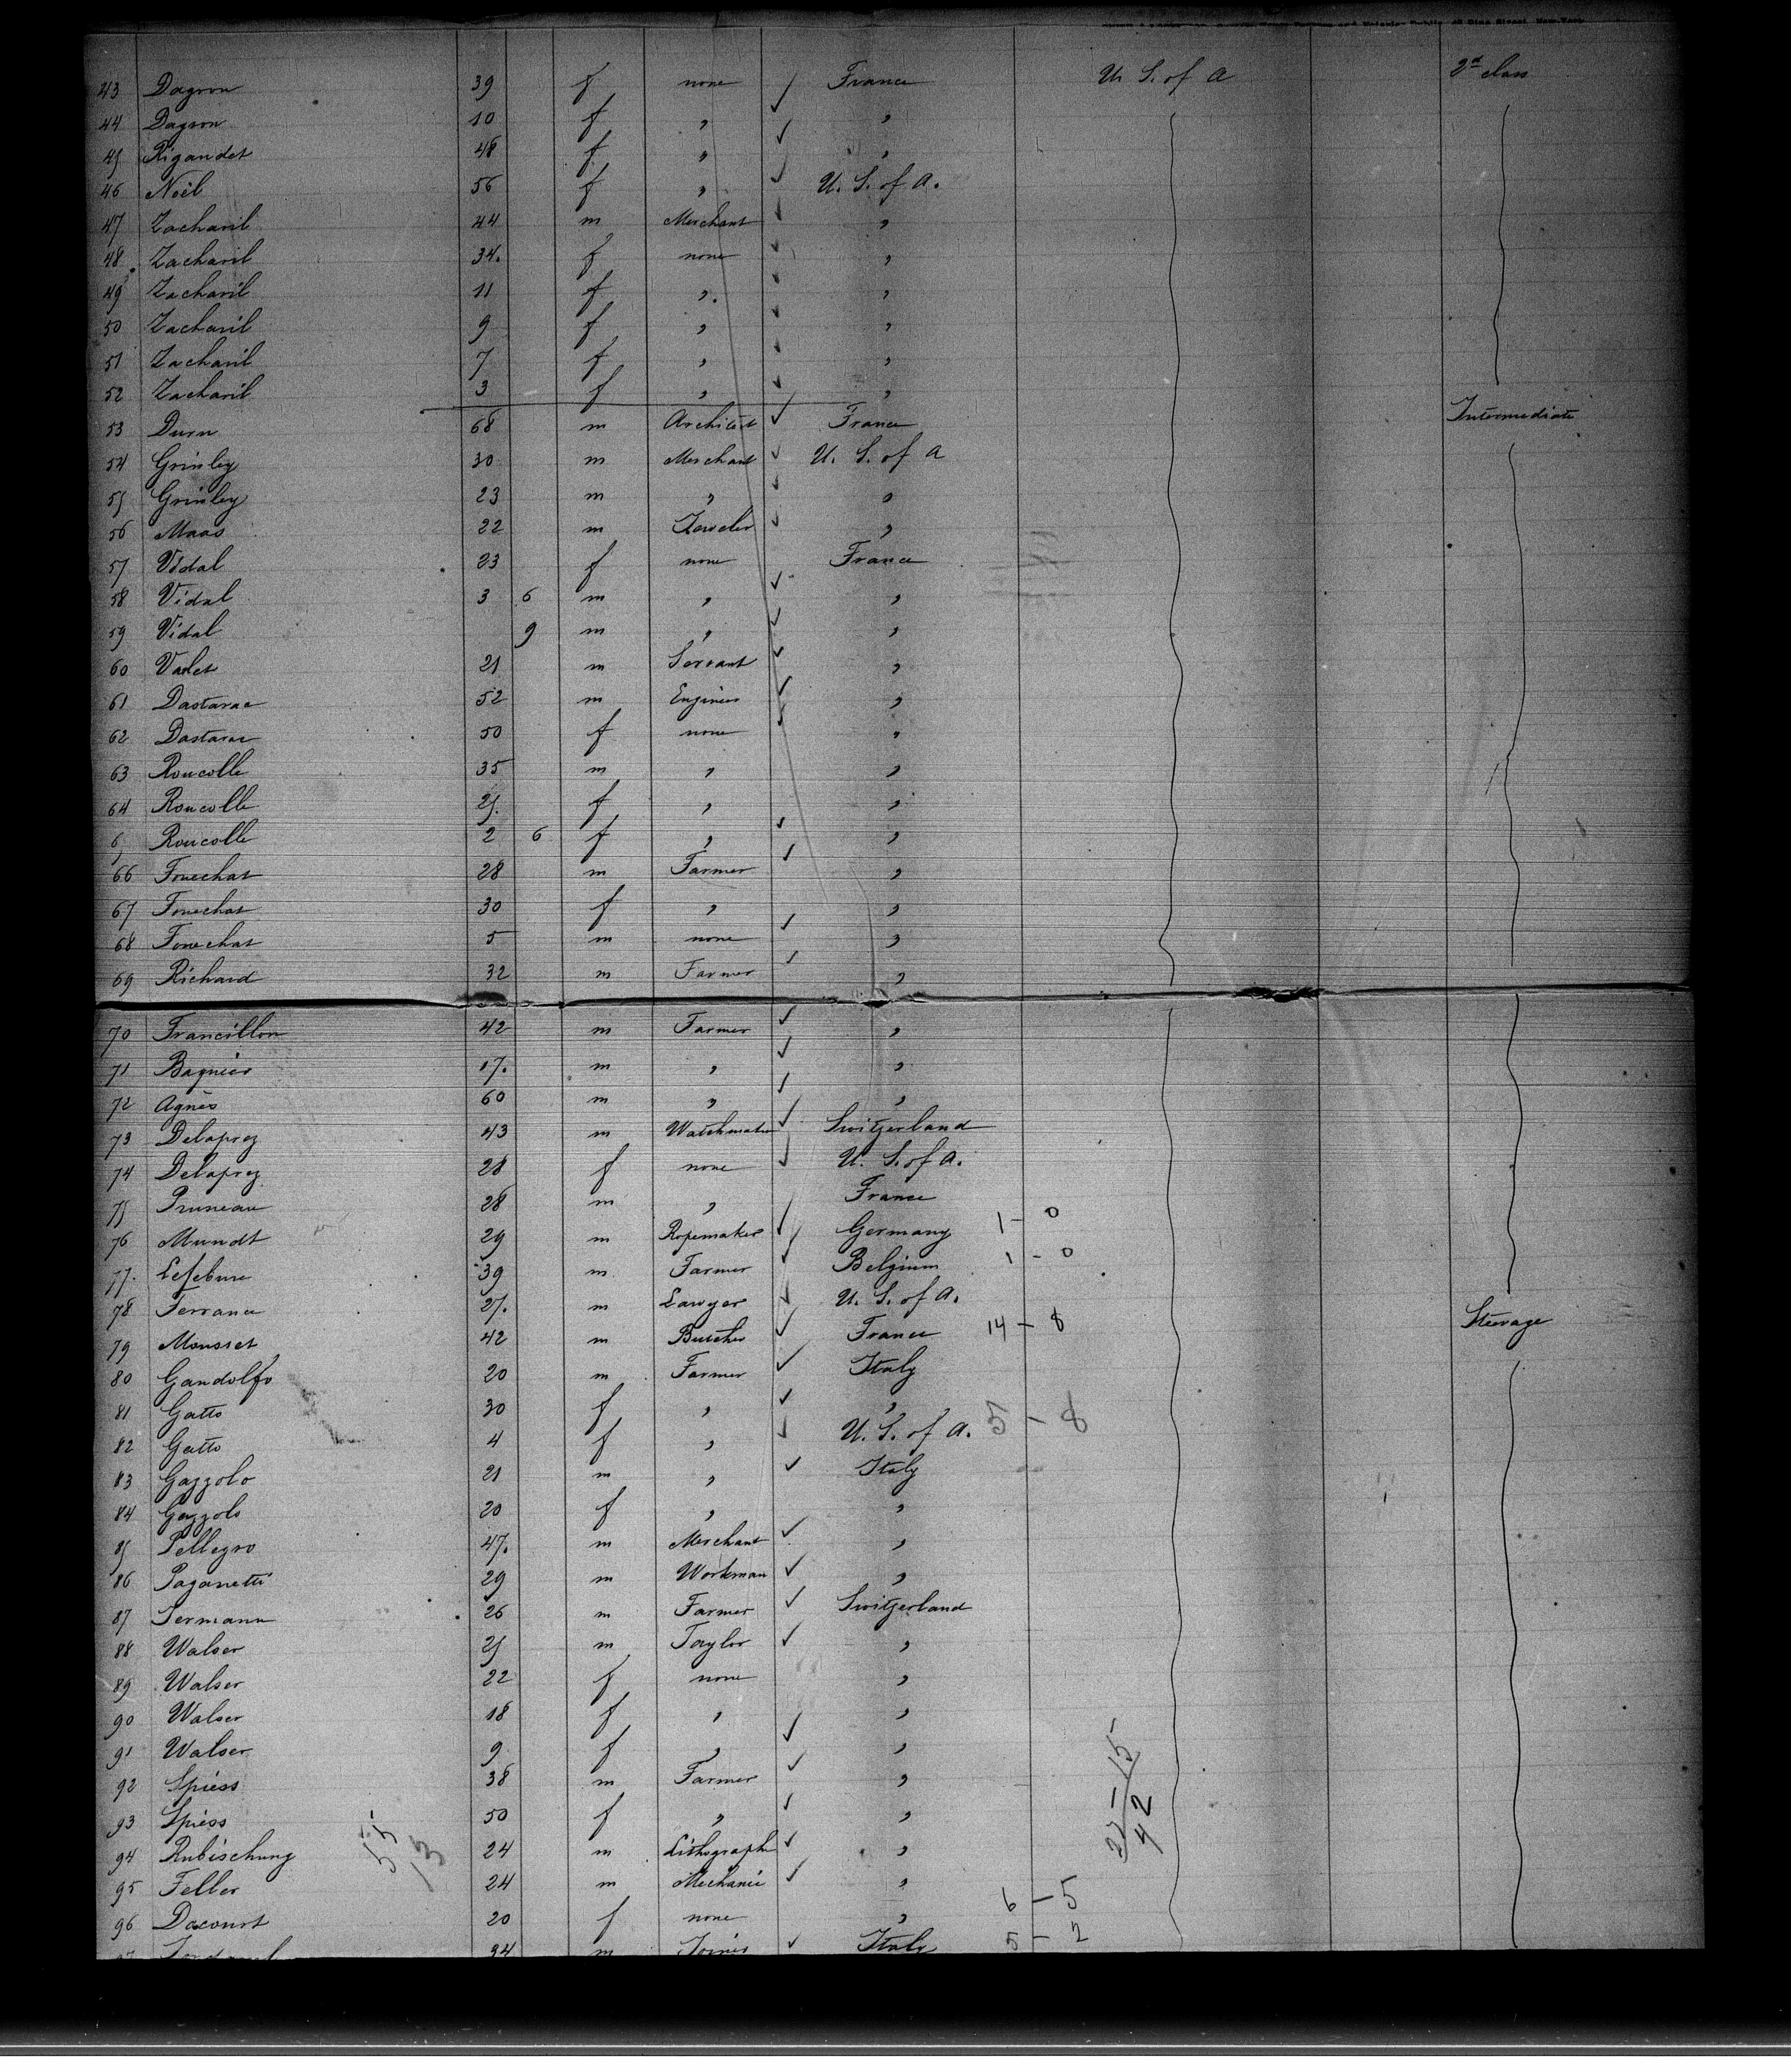 43 Dagron 39 f none ✓ France U. S. of A 2d class
44 Dagron 10 f " ✓ "
45 Rigaudet 48 f " ✓ "
46 Noël 56 f " ✓ U. S. of A.
47 Zacharil 44 m Merchant ✓ "
48 Zacharil 34. f none ✓ "
49 Zacharil 11 f " ✓ "
50 Zacharil 9 f " ✓ "
51 Zacharil 7 f " ✓ "
52 Zacharil 3 f " ✓ "
53 Duru 68 m Architect ✓ France Intermediate
54 Grinley 30 m Merchant ✓ U. S. of A
55 Grinley 23 m " ✓ "
56 Maas 22 m Jeweler ✓ "
57 Vidal 23 f none France
58 Vidal 3 6 m " ✓ "
59 Vidal 9 m " ✓ "
60 Valet 21 m Servant ✓ "
61 Dastarac 52 m Engineer ✓ "
62 Dastarac 50 f none ✓ "
63 Roucolle 35 m " "
64 Roucolle 25. f " "
65 Roucolle 2 6 f " ✓ "
66 Fouechat 28 m Farmer ✓ "
67 Fouechat 30 f " "
68 Fouechat 5 m none ✓ "
69 Richard 32 m Farmer ✓ "
70 Francillon 42 m Farmer ✓ "
71 Bagnier 17. m " ✓ "
72 Agnès 60 m " ✓ "
73 Delaprez 43 m Watchmaker ✓ Switzerland
74 Delaprez 28 f none ✓ U. S. of A.
75 Pruneau 28 m " France
76 Mundt 29 m Ropemaker ✓ Germany 1 - 0
77. Lefebure 39 m Farmer ✓ Belgium 1 - 0
78 Ferrance 27. m Lawyer ✓ U. S. of A.
79 Mousset 42 m Butcher ✓ France 14 - 8 Steerage
80 Gandolfo 20 m Farmer ✓ Italy
81 Gatto 30 f " ✓ "
82 Gatto 4 f " ✓ U. S. of A. 5 - 8
83 Gazzolo 21 m " ✓ Italy
84 Gazzolo 20 f " "
85 Pellegro 47. m Merchant ✓ "
86 Paganetti 29 m Workman ✓ "
87 Sermann 26 m Farmer ✓ Switzerland
88 Walser 25 m Taylor ✓ "
89 Walser 22 f none "
90 Walser 18 f " "
91 Walser 9 f " ✓ "
92 Spiess 38 m Farmer ✓ "
93 Spiess 50 f " ✓ "
94 Rubischung 24 m Lithographe ✓ "
95 Feller 24 m Mechanic ✓ "
96 Dacourt 20 f none " 6 - 5
34 m Joiner ✓ Italy 5 - 2
55
13
27 - 15
42